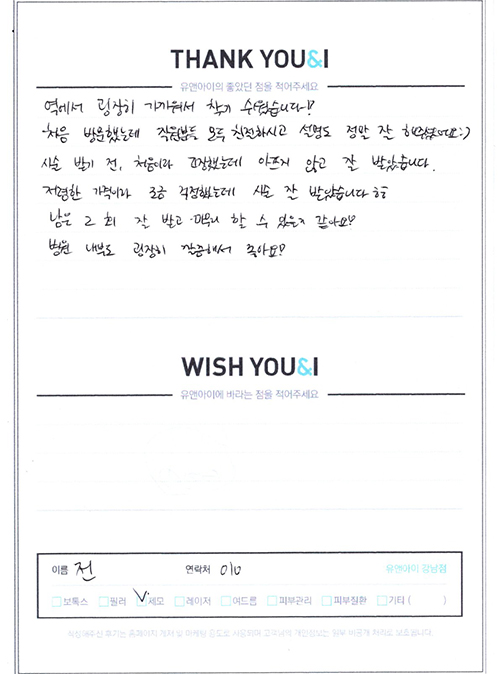 THANK YOU&I
유앤아이의 좋았던 점을 적어주세요
역에서 굉장히 가까워서 찾기 수월했습니다!
처음 방문했는데 직원분들 모두 친절하시고 설명도 정말 잘 해주셨어요:)
시술 받기 전, 처음이라 긴장했는데 아프지 않고 잘 받았습니다.
저렴한 가격이라 조금 걱정했는데 시술 잘 받았습니다 ㅎㅎ
남은 2회 잘 받고 마무리 할 수 있을거 같아요!
병원 내부도 굉장히 깔끔해서 좋아요!
WISH YOU&I
유앤아이에 바라는 점을 적어주세요
이름 전 연락처 010 유앤아이 강남점
보톡스 필러 V 제모 레이저 여드름 피부관리 피부질환 기타 ( )
작성해주신 후기는 홈페이지 게재 및 마케팅 용도로 사용되며 고객님의 개인정보는 일부 비공개 처리로 보호됩니다.